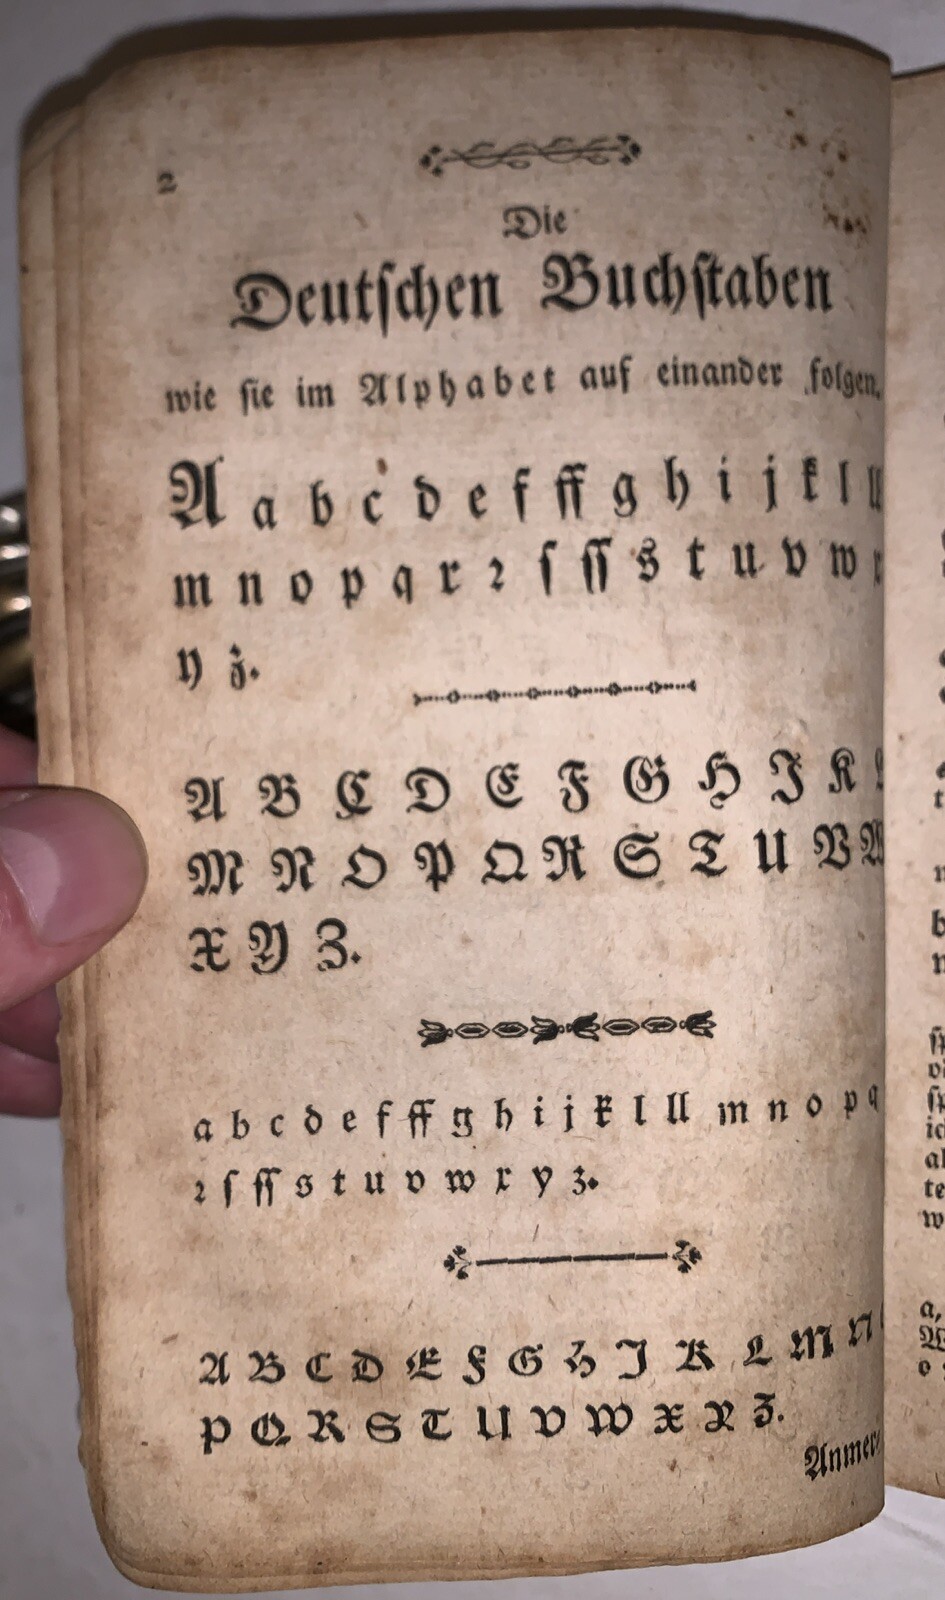 2
Die
Deutſchen Buchſtaben
wie ſie im Alphabet auf einander folgen.
A a b c d e f ff g h i j k l ll
m n o p q r ꝛ ſ ſſ s t u v w x
y z.
A B C D E F G H J K L
M N O P Q R S T U V W
X Y Z.
a b c d e f ff g h i j k l ll m n o p q
ꝛ ſ ſſ s t u v w x y z.
A B C D E F G H J K L M N O
P Q R S T U V W X Y Z.
Anmer⸗